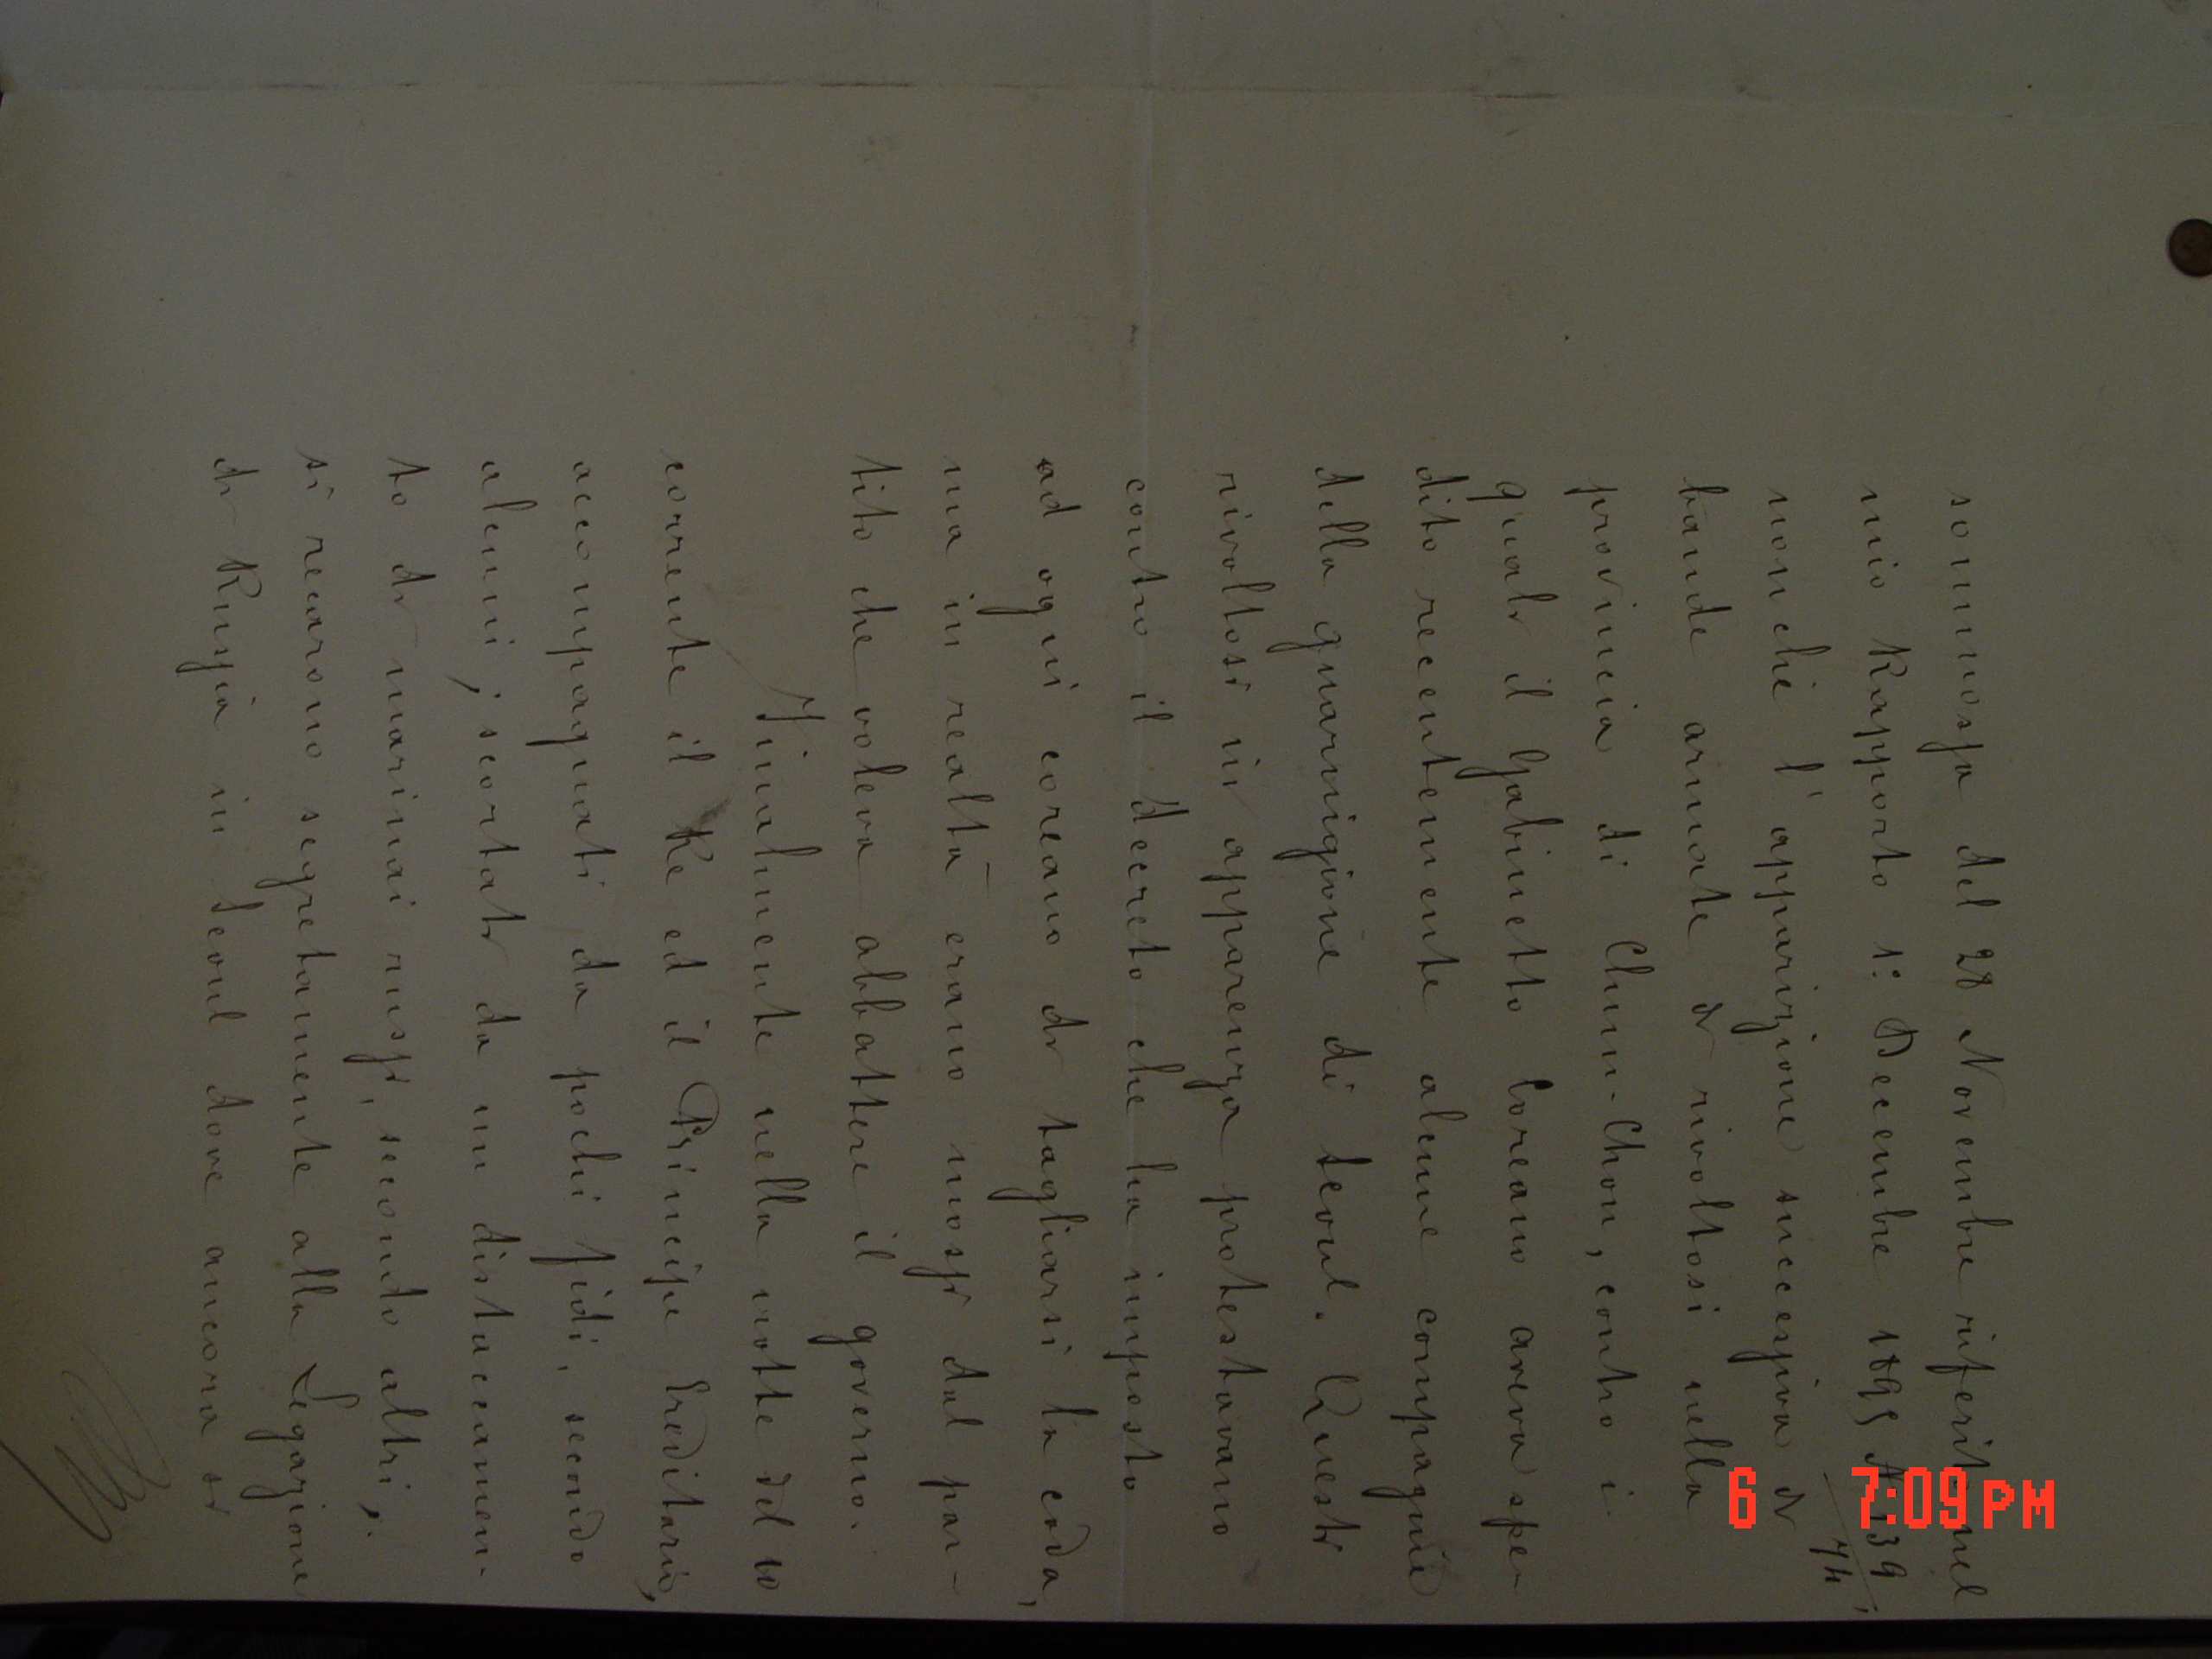 sommossa del 28 Novembre riferita nel
mio Rapporto 1° Decembre 1895 N 139/74;
nonchè l'apparizione successiva di
bande armate di rivoltosi nella
provincia di Chun-Chon, contro i
quali il Gabinetto Coreano aveva spe-
dito recentemente alcune compagnie
della guarnigione di Seoul. Questi
rivoltosi in apparenza protestavano
contro il decreto che ha imposto
ad ogni coreano di tagliarsi la coda,
ma in realtà erano mossi dal par-
tito che voleva abbattere il governo.
Finalmente nella notte del 10
corrente il Re ed il Principe Ereditario,
accompagnati da pochi fidi, secondo
alcuni; scortati da un distaccamen-
to di marinai russi, secondo altri;
si recarono segretamente alla Legazione
di Russia in Seoul dove ancora si
6 7:09 PM